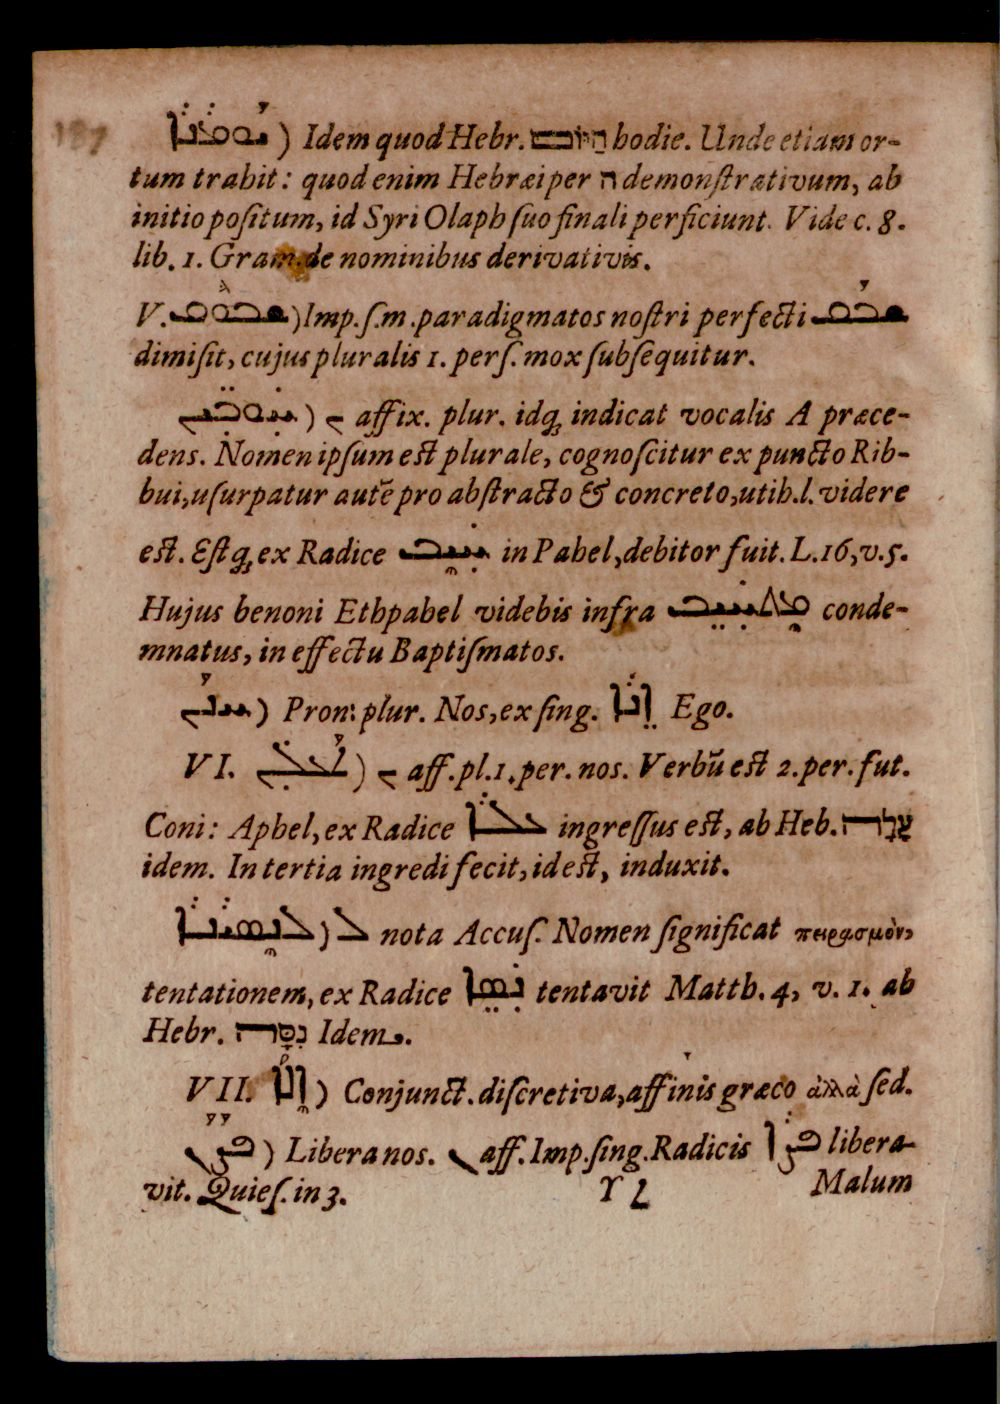 ܝܰܘܡܳܢܳܐ) Idem quod Hebr. הַיּוֹם hodie. Unde etiam or-
tum trahit: quod enim Hebræi per ה demonstrativum, ab
initio positum, id Syri Olaph suo finali perficiunt. Vide c. 8.
lib. 1. Gram. de nominibus derivativis.
V. ܫܒܘܩ) Imp. s. m. paradigmatos nostri perfecti ܫܒܰܩ
dimisit, cujus pluralis 1. pers. mox subsequitur.
ܚܘܒܝܢ) ܢ affix. plur. idq; indicat vocalis A præce-
dens. Nomen ipsum est plurale, cognoscitur ex puncto Rib-
bui, usurpatur autẽ pro abstracto & concreto, uti h. l. videre
est. Estq; ex Radice ܚܝܒ in Pahel, debitor fuit. L. 16, v. 5.
Hujus benoni Ethpahel videbis infra ܡܬܚܝܒ conde-
mnatus, in effectu Baptismatos.
ܚܢܰܢ) Pron: plur. Nos, ex sing. ܐܢܐ Ego.
VI. ܬܥܠܢ) ܢ aff. pl. 1. per. nos. Verbũ est 2. per. fut.
Coni: Aphel, ex Radice ܥܠܠ ingressus est, ab Heb. עָלָה
idem. In tertia ingredi fecit, id est, induxit.
ܠܢܣܝܘܢܐ) ܠ nota Accus. Nomen significat πειρασμὸν,
tentationem, ex Radice ܢܣܐ tentavit Matth. 4, v. 1. ab
Hebr. נִסָּה Idem.
VII. ܐܠܐ) Conjunct. discretiva, affinis græco ἀλλὰ sed.
ܦܨܢ) Libera nos. ܢ aff. Imp. sing. Radicis ܦܨܐ libera-
vit. Quies. in 3.
Malum